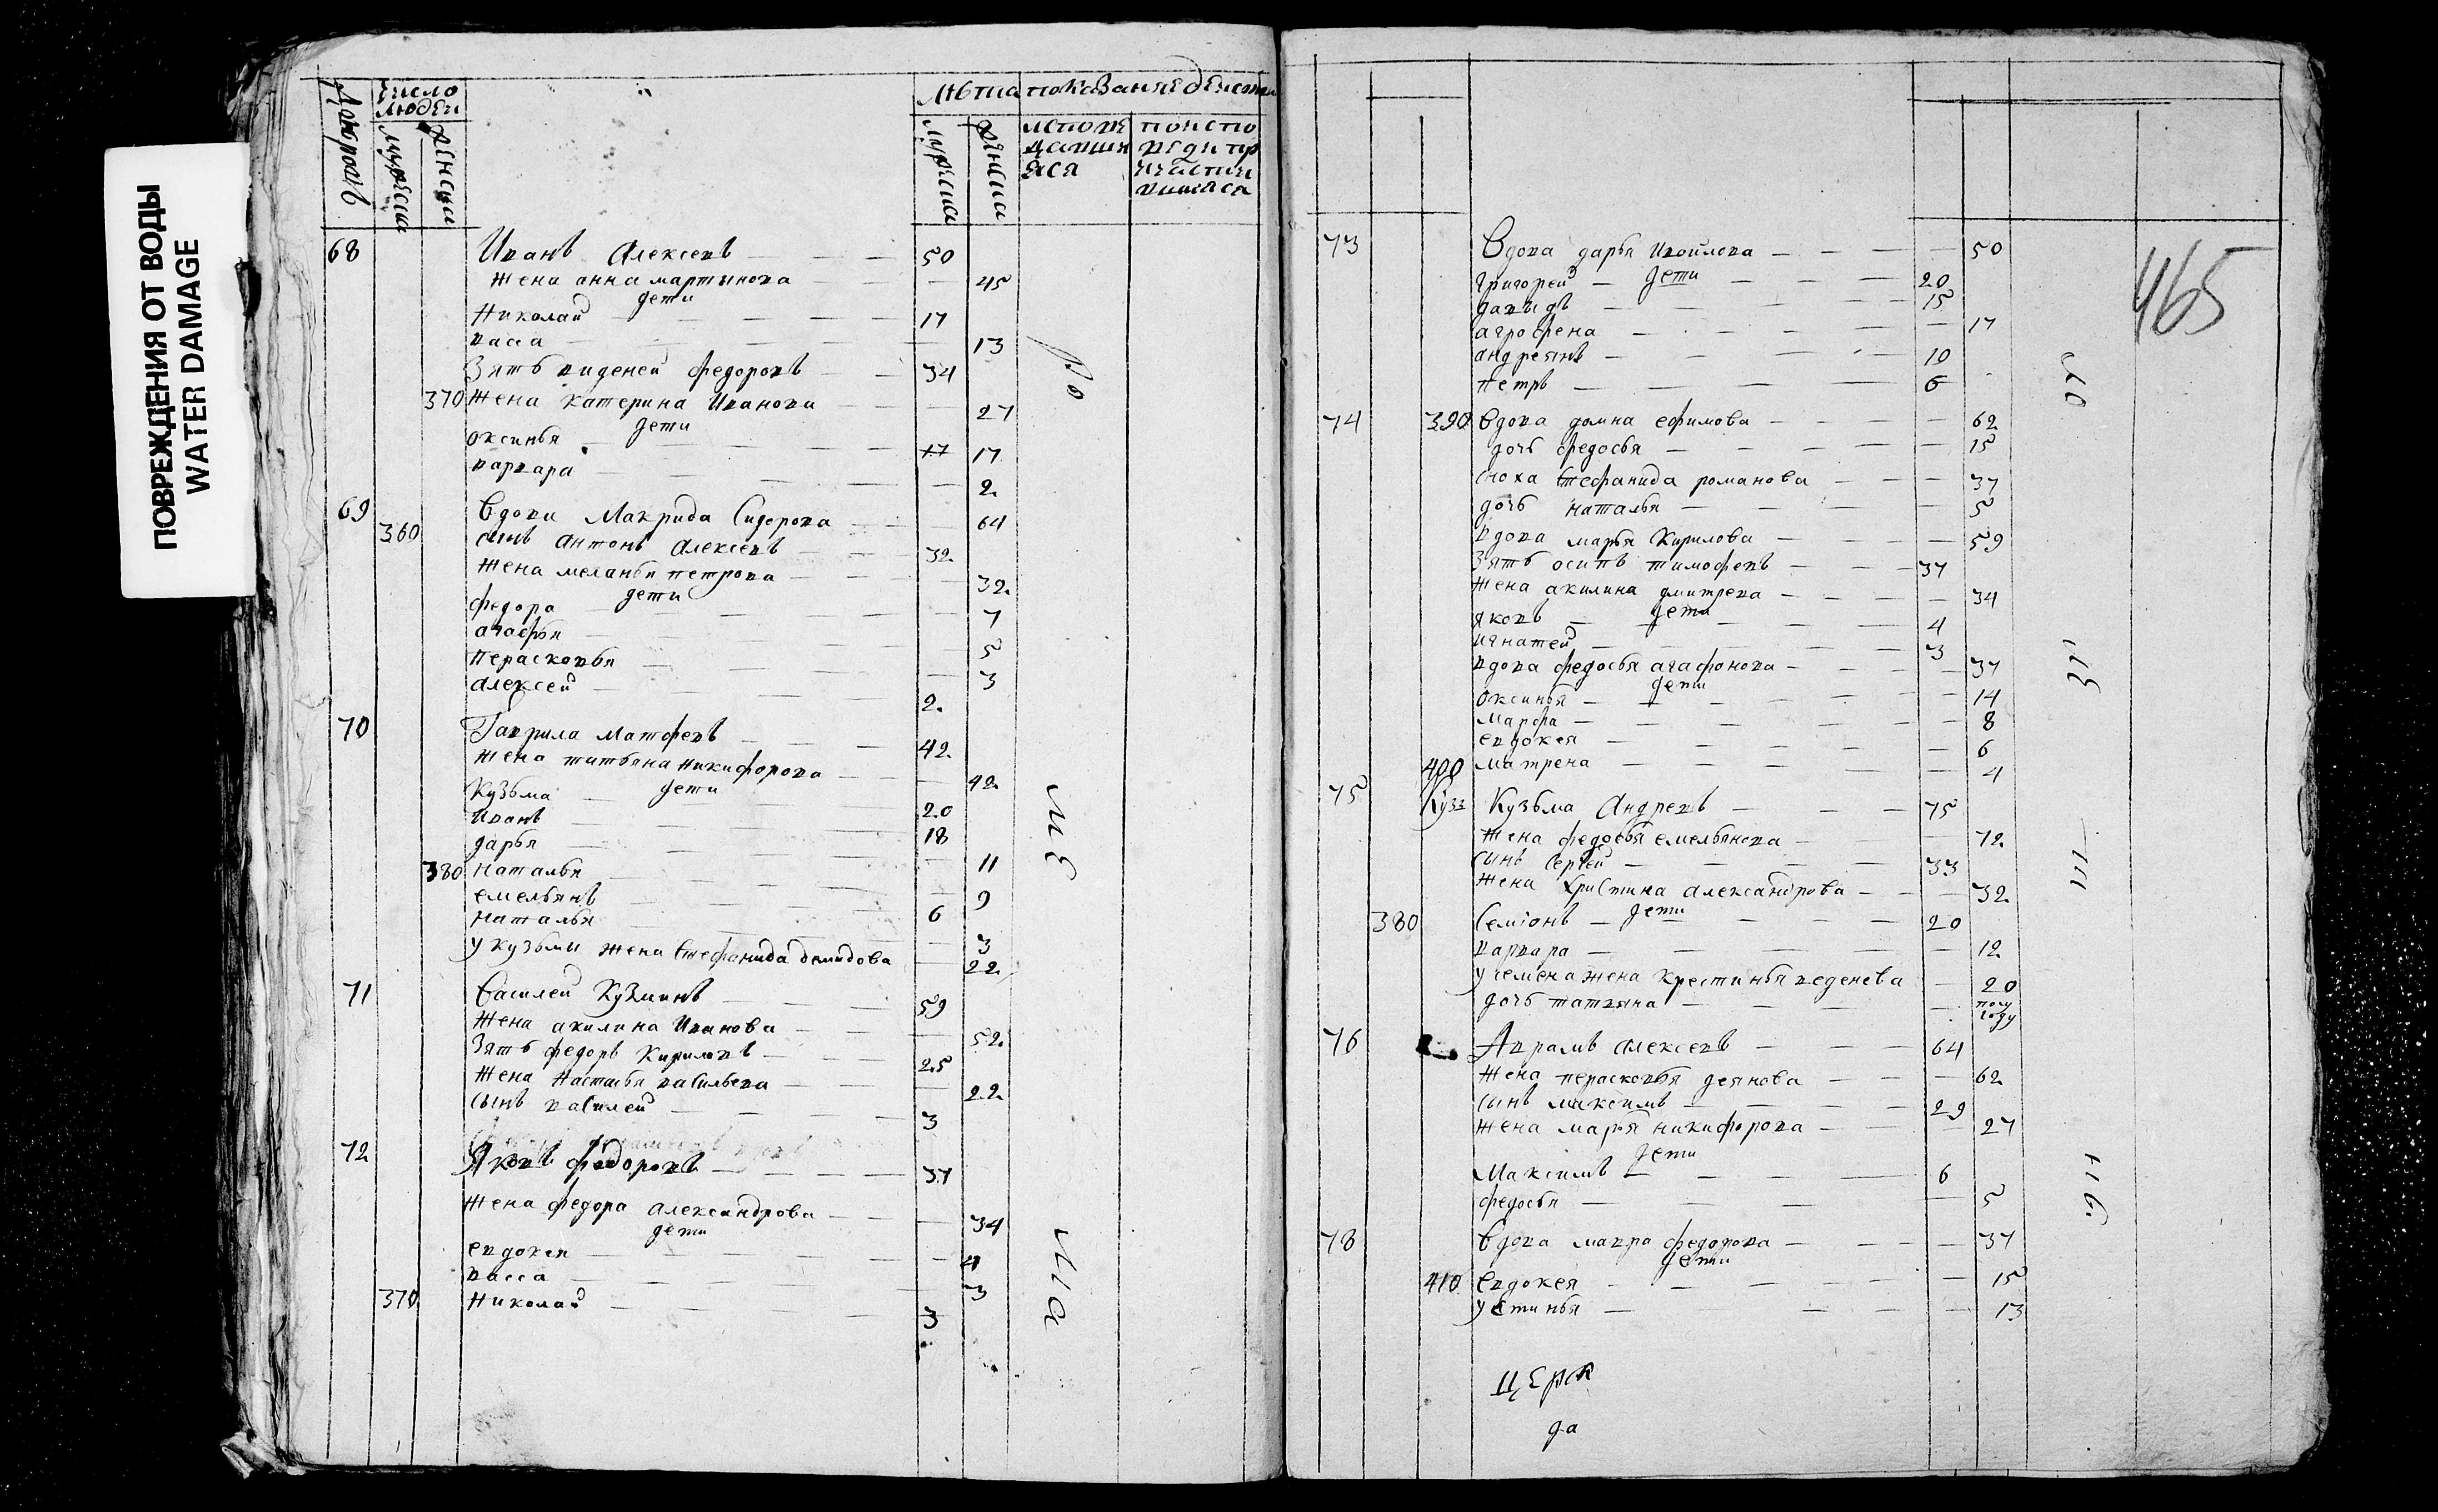 ПОВРЕЖДЕНИЯ ОТ ВОДЫ
WATER DAMAGE
число людей
мужеска
женска
лѣта
мужска
женска
68 Иванъ Алексеевъ 50
жена анна мартынова 45
дети
Николай 17
васса 13
Зять виденей федоровъ 34
370 жена катерина Иванова 27
дети
оксинья 17 17
варвара 2.
69 Вдова Макрида Сидорова 64
360 сынъ антонъ алексевъ 32.
жена меланья петрова 32.
дети
федора 7
агафья 5
Перасковья 3
алексей 2.
70 Гаврила матфевъ 42.
жена татьяна никифорова 42.
дети
Кузьма 20
иванъ 18
дарья 11
380 наталья 9
емельянъ 6
наталья 3
у кузьмы жена Стефанида демидова 22.
71 Василей Кузминъ 59
жена акилина Иванова 52.
Зять федоръ Кириловъ 25
жена Настасья васильева 22.
сынъ василей 3
72 Яковъ федоровъ 37
жена федора александрова 34
дети
евдокея 4
васса 3
370 Николай 3
ро
мз
ша
465
73 Вдова дарья Ивойлова 50
дети
григорей 20
давыдъ 15
агрофена 17
андреянъ 10
петръ 6
74 390 Вдова домна ефимова 62
дочь федосья 15
сноха стефанида романова 37
дочь наталья 5
вдова марья Кирилова 59
Зять осипъ тимофевъ 37
жена акилина дмитрева 34
дети
яковъ 4
игнатей 3
вдова федосья агафонова 37
дети
оксинья 14
марфа 8
евдокея 6
400 матрена 4
75 Кузз Кузьма Андревъ 75
жена федосья емельянова 72.
сынъ Сергей 33
жена христина александрова 32.
дети
380 Семіонъ 20
варвара 12.
у семена жена крестинья веденева 20
дочь татьяна полу году
76 Аврамъ алексевъ 64
жена перасковья деянова 62.
сынъ максимъ 29
жена марья никифорова 27
дети
Максимъ 6
федосья 5
78 Вдова мавра федорова 37
дети
410 Евдокея 15
устинья 13
церк
да